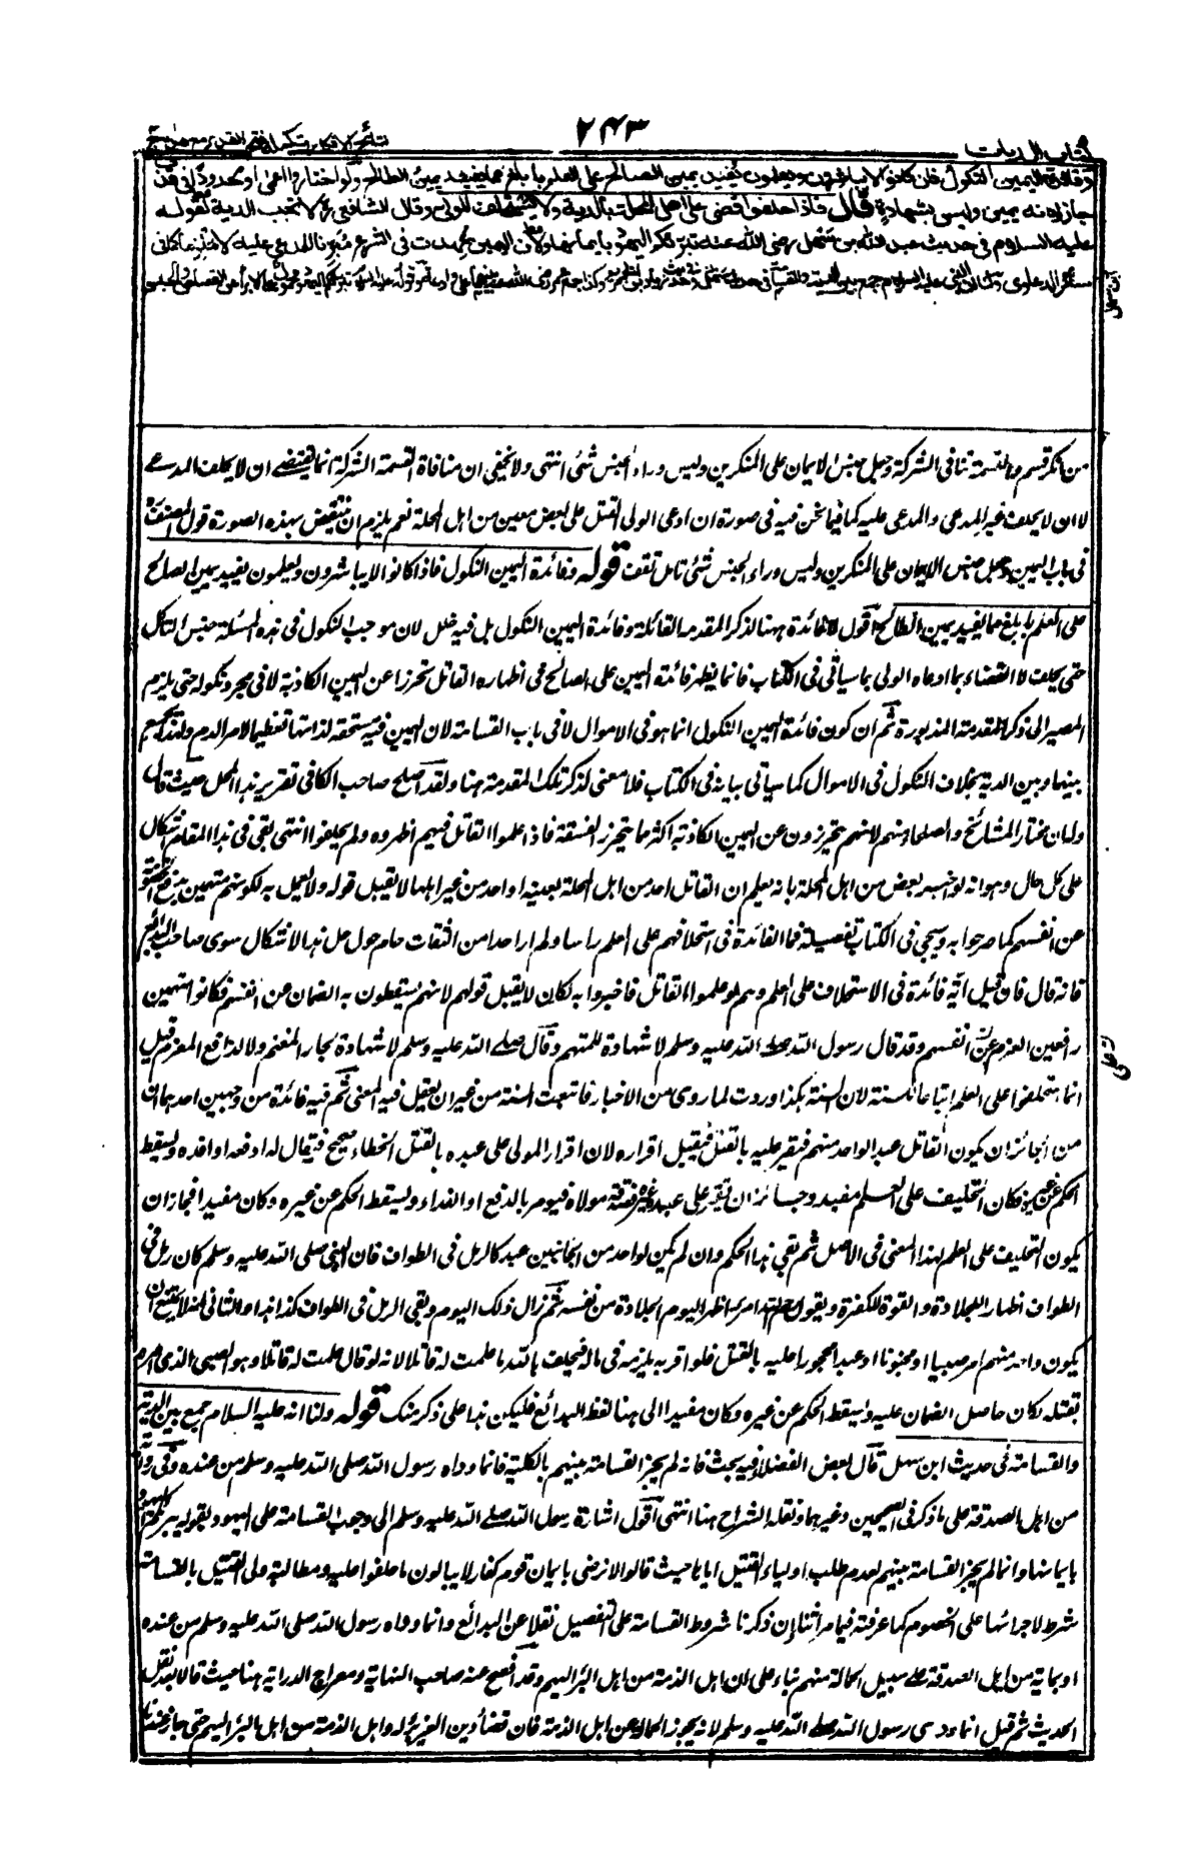 كتاب الديات
٢٤٣
نتائج الافكار تكملة فتح القدير مع
وفائدة اليمين النكول فان كانوا لا يباشرون ويعلمون يفيد يمين الصالح على العلم بابلغ مما يفيد يمين الطالح ولو اختاروا اعمى او محدودا في قذف
جاز لانه يمين وليس بشهادة قال فاذا حلفوا قضى على اهل المحلة بالدية ولا يستحلف الولى وقال الشافعى لا تجب الدية لقوله
عليه السلام فى حديث عبد الله بن سهل رضى الله عنه تبرئكم اليهود بايمانها ولان اليمين عهدت فى الشرع مبرئا للمدعى عليه لا ملزما كما فى
سائر الدعاوى ولنا ان النبى عليه السلام جمع بين الدية والقسامة فى حديث ابن سهل
من انكر قسم والقسمة تنافى الشركة وجعل جنس الايمان على المنكرين وليس وراء الجنس شئ انتهى ولا يخفى ان منافاة القسمة الشركة انما يقتضى ان لا يحلف المدعى
لا ان لا يحلف غير المدعى والمدعى عليه كما فيما نحن فيه فى صورة ان ادعى الولى القتل على بعض معين من اهل المحلة نعم يلزم ان ينتقض بهذه الصورة قول المصنف
فى باب اليمين وجعل جنس الايمان على المنكرين وليس وراء الجنس شئ تامل تقف قوله وفائدة اليمين النكول فاذا كانوا لا يباشرون ويعلمون يفيد يمين الصالح
على العلم بابلغ مما يفيد يمين الطالح اقول لا فائدة ههنا لذكر المقدمة القائلة وفائدة اليمين النكول بل فيه خلل لان موجب النكول فى هذه المسئلة حبس الناكل
حتى يحلف لا القضاء بما ادعاه الولى بما سياتى فى الكتاب فانما يظهر فائدة اليمين على الصالح فى اظهاره القاتل تحرزا عن اليمين الكاذبة لا فى مجرد نكوله حتى يلزم
المصير الى ذكر المقدمة المذبورة ثم ان كون فائدة اليمين النكول انما هو فى الاموال لا فى باب القسامة لان اليمين فيه مستحقة لذاتها تعظيما لامر الدم ولهذا يجمع
بينها وبين الدية بخلاف النكول فى الاموال كما سياتى بيانه فى الكتاب فلا معنى لذكر تلك المقدمة هنا ولقد اصلح صاحب الكافى تقرير هذا المحل حيث قال
وله ان يختار المشائخ والصلحاء منهم لانهم يتحرزون عن اليمين الكاذبة اكثر مما يتحرز الفسقة فاذا علموا القاتل فيهم اظهروه ولم يحلفوا انتهى بقى فى هذا المقام اشكال
على كل حال وهو انه لو اخبر بعض من اهل المحلة بانه يعلم ان القاتل احد من اهل المحلة بعينه او احد من غير اهلها لا يقبل قوله ولا يعمل به لكونهم متهمين بدفع الخصومة
عن انفسهم كما صرحوا به وسيجئ فى الكتاب تفصيله فما الفائدة فى استحلافهم على العلم راسا ولم ار احدا من الثقات حام حول حل هذا الاشكال سوى صاحب البدائع
فانه قال فان قيل اية فائدة فى الاستحلاف على العلم وهم لو علموا القاتل فاخبروا به لكان لا يقبل قولهم لانهم يسقطون به الضمان عن انفسهم فكانوا متهمين
رافعين الغرم عن انفسهم وقد قال رسول الله صلى الله عليه وسلم لا شهادة للمتهم وقال صلى الله عليه وسلم لا شهادة لجار المغنم ولا لدافع المغرم قيل
انما استحلفوا على العلم اتباعا للسنة لان السنة هكذا وردت لما روى من الاخبار فاتبعت السنة من غير ان يعقل فيه المعنى ثم فيه فائدة من وجهين احدهما ان
من الجائز ان يكون القاتل عبدا لواحد منهم فيقر عليه بالقتل فيقبل اقراره لان اقرار المولى على عبده بالقتل الخطاء صحيح فيقال له ادفعه او افده ويسقط
الحكم عن غيره فكان التحليف على العلم مفيدا وجائز ان يقر على عبد غيره فصدقه مولاه فيؤمر بالدفع او الفداء ويسقط الحكم عن غيره وكان مفيدا فجاز ان
يكون التحليف على العلم لهذا المعنى فى الاصل ثم بقى هذا الحكم وان لم يكن لواحد من الجانبين عبد كالرمل فى الطواف فان النبى صلى الله عليه وسلم كان رمل فى
الطواف اظهارا للجلادة والقوة للكفرة ويقول رحم الله امرأ اظهر اليوم الجلادة من نفسه ثم زال ذلك اليوم وبقى الرمل فى الطواف كذا هذا والثانى انه لا يمتنع ان
يكون واحد منهم امر صبيا او مجنونا او عبدا محجورا عليه بالقتل فلو اقر به يلزمه فى ماله فيحلف بالله ما علمت له قاتلا لانه لو قال علمت له قاتلا وهو الصبى الذى امره
بقتله لكان حاصل الضمان عليه ويسقط الحكم عن غيره وكان مفيدا الى هنا لفظ البدائع فليكن هذا على ذكر منك قوله ولنا انه عليه السلام جمع بين الدية
والقسامة فى حديث ابن سهل قال بعض الفضلاء فيه بحث فانه لم يجز القسامة بينهم بالكلية فانما وداه رسول الله صلى الله عليه وسلم من عنده وفى رواية
من ابل الصدقة على ما ذكر فى الصحيحين وغيرهما ونقله الشراح هنا انتهى اقول اشارة رسول الله صلى الله عليه وسلم الى وجوب القسامة على اليهود بقوله تبرئكم اليهود
بايمانها وانما لم يجز القسامة بينهم لعدم طلب اولياء القتيل اياها حيث قالوا لا نرضى بايمان قوم كفار لا يبالون ما حلفوا عليه ومطالبة ولى القتيل بالقسامة
شرط لاجرائها على الخصوم كما عرفته فيما مر اثناء ان ذكرنا شروط القسامة على التفصيل نقلا عن البدائع وانما وداه رسول الله صلى الله عليه وسلم من عنده
او بمائة من ابل الصدقة على سبيل الحمالة منهم بناء على ان اهل الذمة من اهل البر اليهم وقد افصح عنه صاحب النهاية ومعراج الدراية هنا حيث قالا بعد نقل
الحديث ثم قيل انما ودى رسول الله صلى الله عليه وسلم لانه يجوز الحمالة عن اهل الذمة فان قضاء دين الغريم له واهل الذمة من اهل البر اليهم حتى جاز عندنا